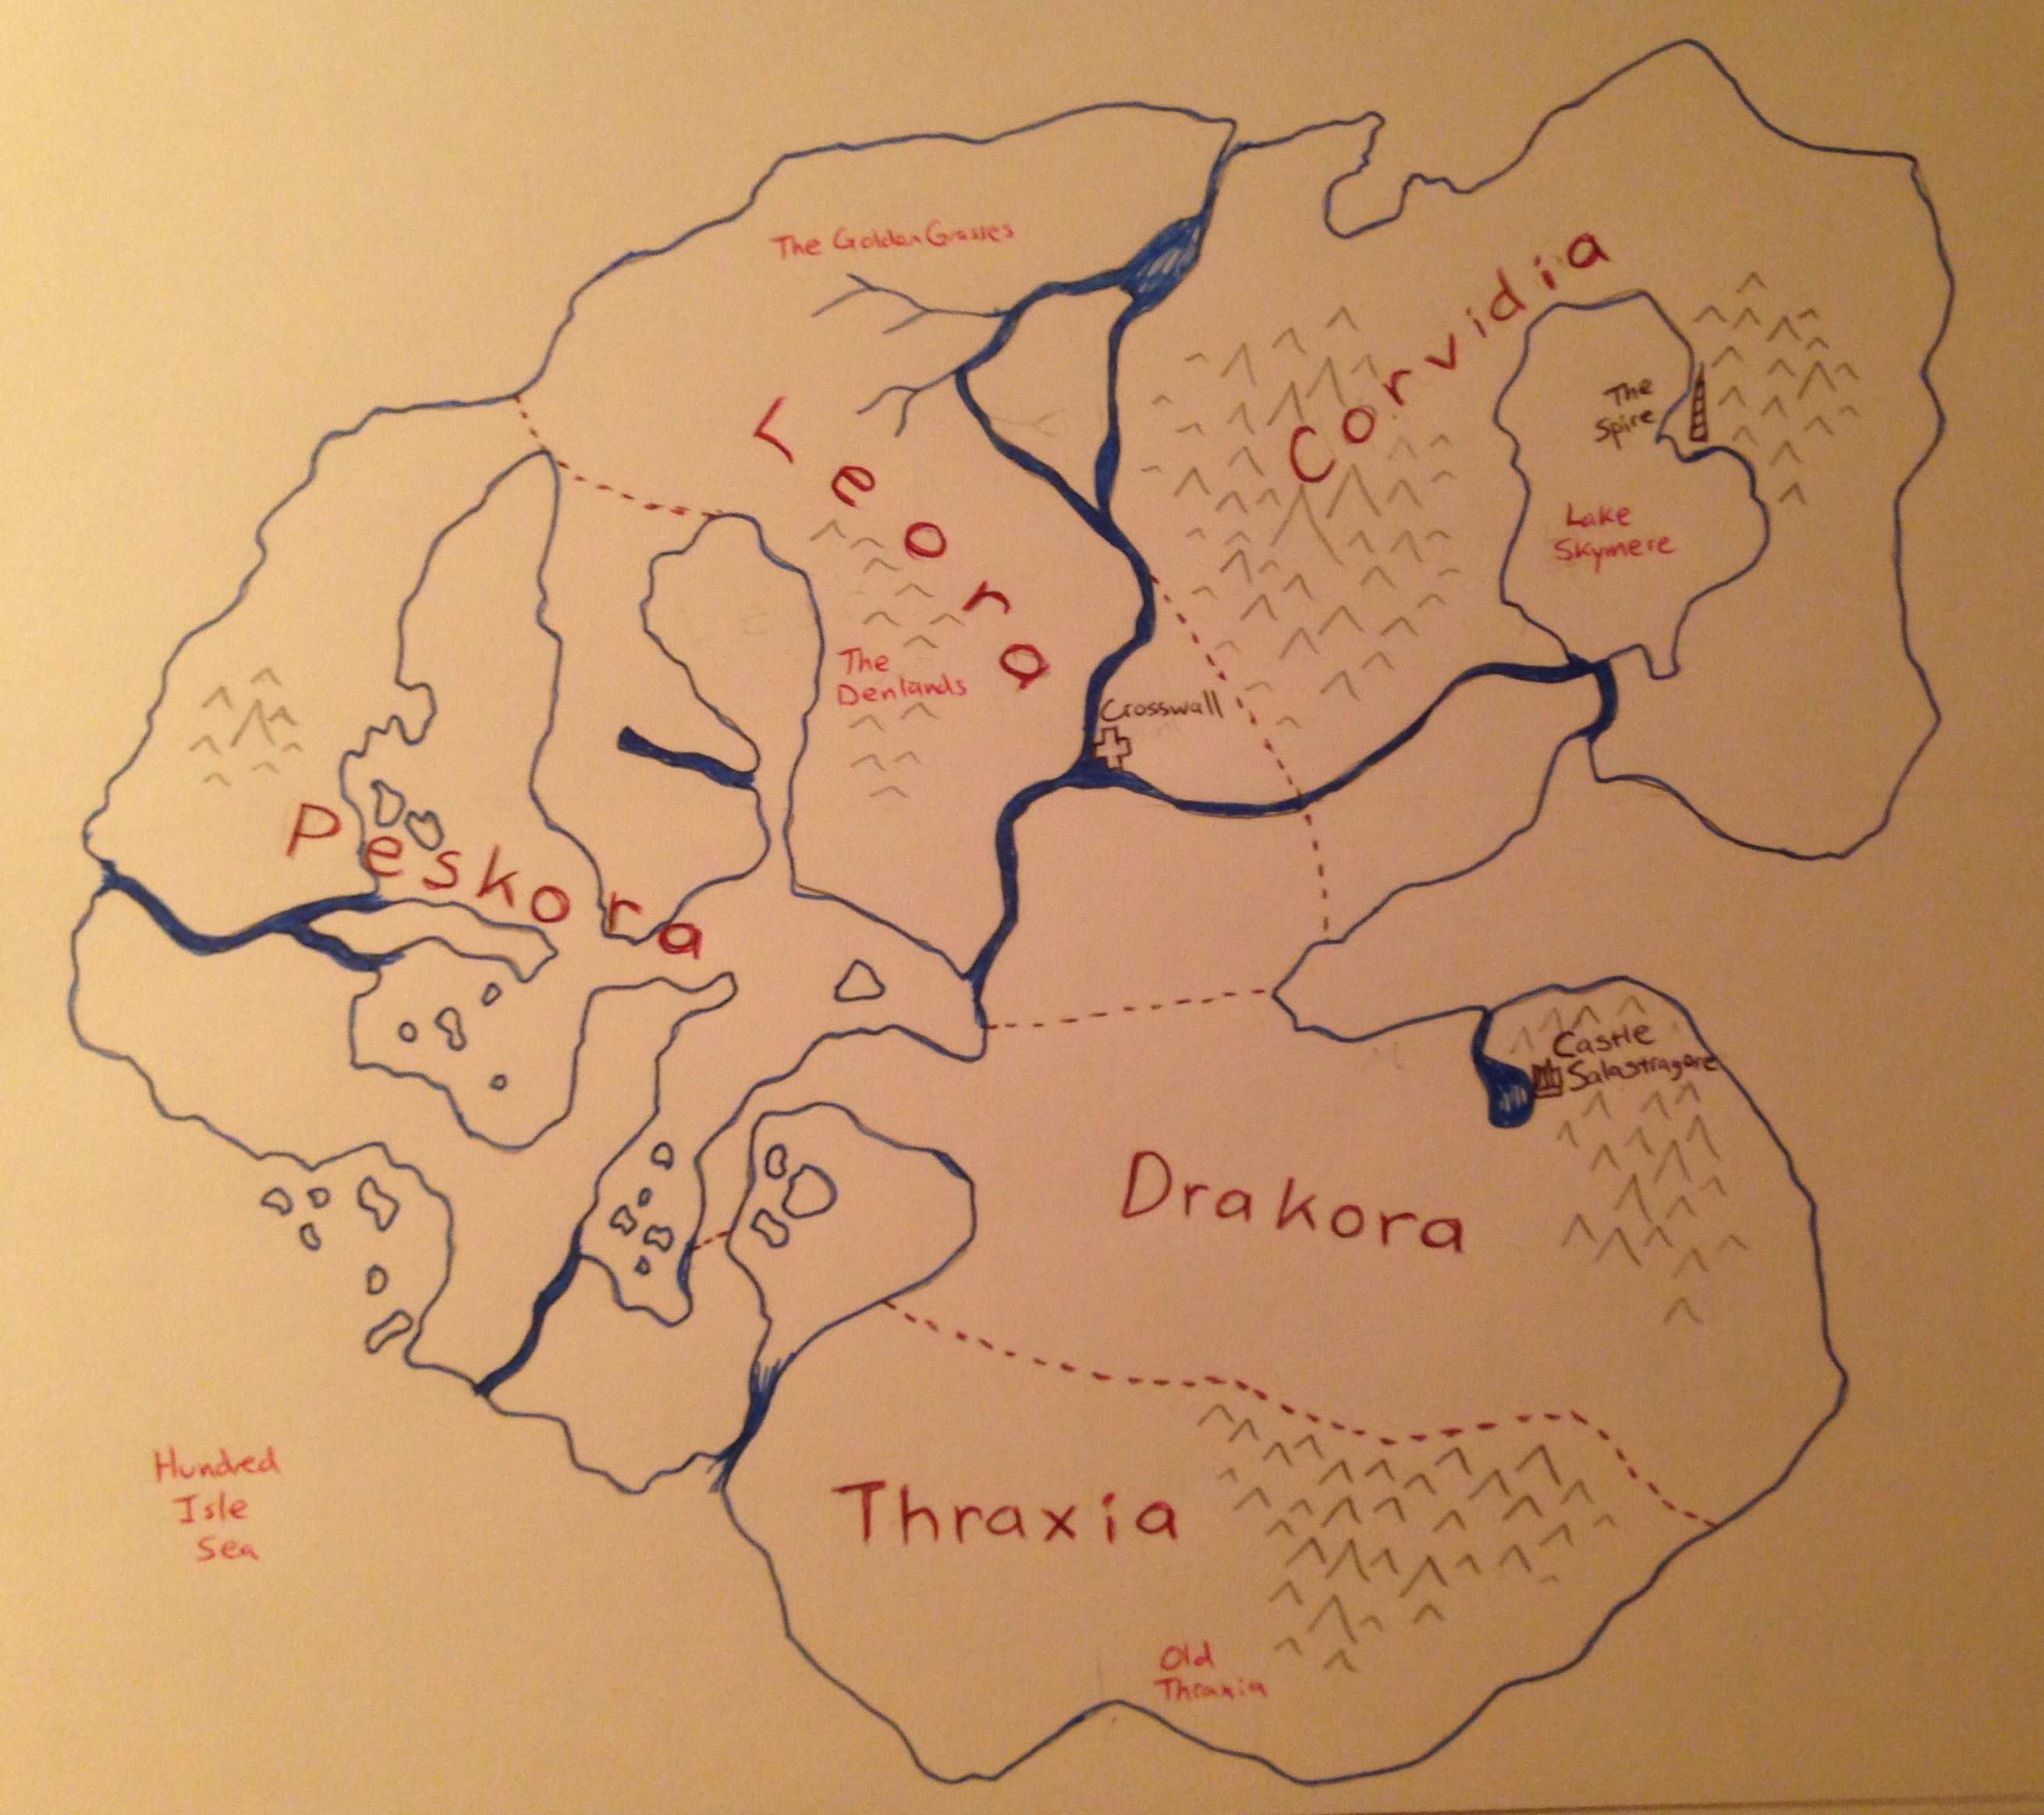 The Golden Grasses
Corvidia
Leora
The
Spire
Lake
Skymere
The
Denlands
Crosswall
Peskora
Castle
Salastragore
Drakora
Thraxia
Hundred
Isle
Sea
Old
Thraxia